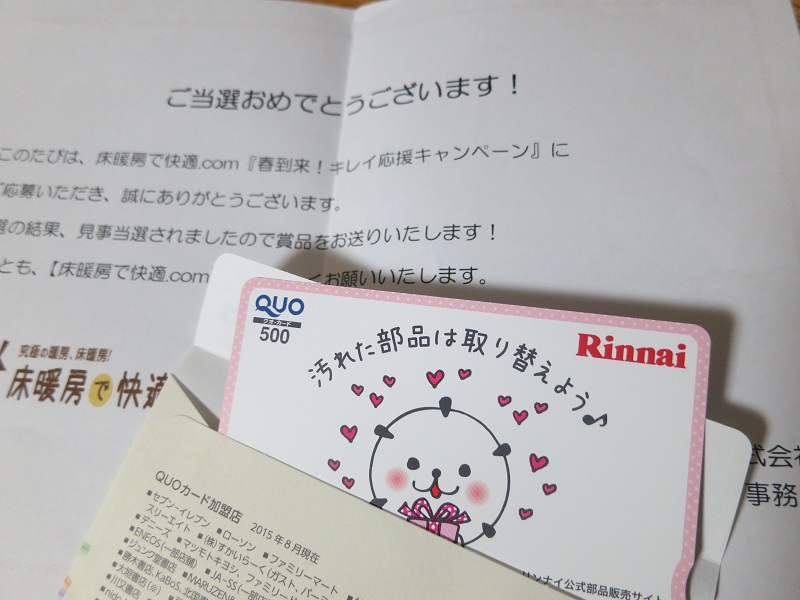 ご当選おめでとうございます！
このたびは、床暖房で快適.com『春到来！キレイ応援キャンペーン』に
ご応募いただき、誠にありがとうございます。
選の結果、見事当選されましたので賞品をお送りいたします！
とも、【床暖房で快適.com
くお願いいたします。
究極の暖房、床暖房!
床暖房で快適
式会社
事務
QUO
クオ・カード
500
Rinnai
汚れた部品は取り替えよう♪
リンナイ公式部品販売サイト
QUOカード加盟店 2015年8月現在
■セブン-イレブン ■ローソン ■ファミリーマート
スリーエイト ■(株)すかいらーく(ガスト、バーミ
■デニーズ ■マツモトキヨシ、ファミリード
■ENEOS(一部店舗) ■JA-SS(一部店
■ジュンク堂書店 ■MARUZEN
■勝木書店、KaBoS、北国書
■大垣書店(※)
■川又書店
■nido